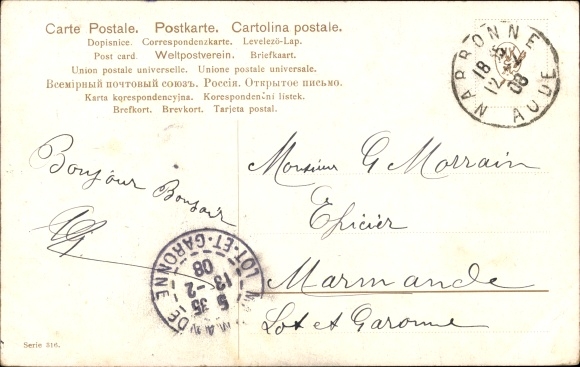 Carte Postale. Postkarte. Cartolina postale.
Dopisnice. Correspondenzkarte. Levelező-Lap.
Post card. Weltpostverein. Briefkaart.
Union postale universelle. Unione postale universale.
Всемірный почтовый союзъ. Россія. Открытое письмо.
Karta korespondencyjna. Korespondenční lístek.
Brefkort. Brevkort. Tarjeta postal.
NARBONNE
AUDE
18
12
08
Bonjour Bonsoir
Monsieur G Morrain
Épicier
Marmande
Lot et Garonne
MARMANDE
LOT-ET-GARONNE
5 35
13-2
08
Serie 316.